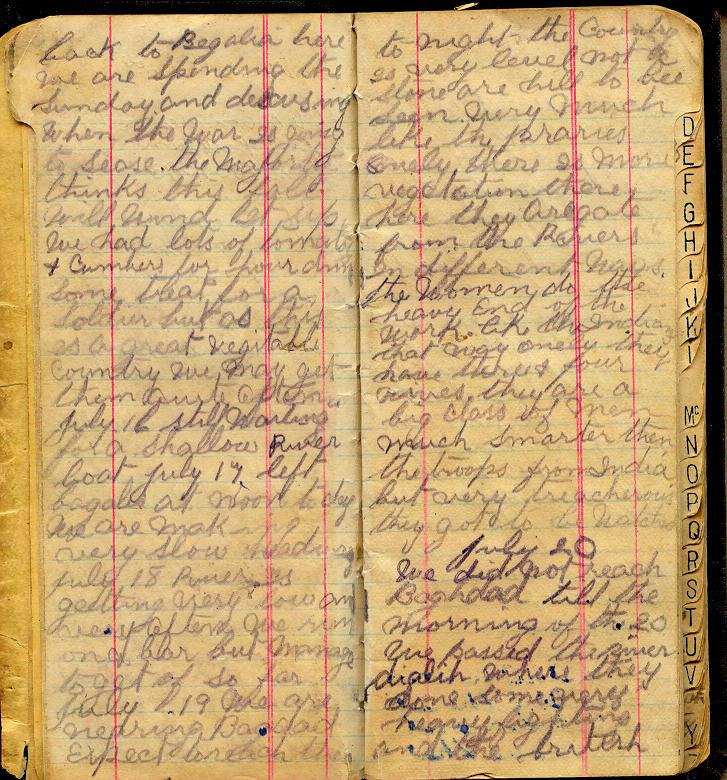 back to Begalia here
we are spending the
Sunday and
when the War is
to sease the Majority
thinks this
will
We had lots of tomato
+ Cumbers for
Some treat for a
Soldier but as this
is a great vegitable
Country we may get
them quite often
july 16 still Waiting
for a Shallow River
boat july 17 left
at noon to day
We are mak
very slow
july 18 River is
getting very low an
very often We run
on a bar but Manage
to get of so far
july 19 We are
nearing Bagdad
Expect to reach
to night the Country
is very level not a
stone are hill to bee
seen very Much
like the praries
onely there is More
vegetation there
here they
from the Rivers
in different Ways
the Women do the
heavy End of the
work. Lik the Indian
that way onely they
have three four
wives, they are a
big class of Men
much Smarter then
the troops from India
but very treacherous
they got to be Watched
july 20
We did not reach
Baghdad till the
morning of the 20
We passed the river
where they
done some very
heavy fighting
and the british
D
E
F
G
H
I
J
K
L
Mc
N
O
P
Q
R
S
T
U
V
Y